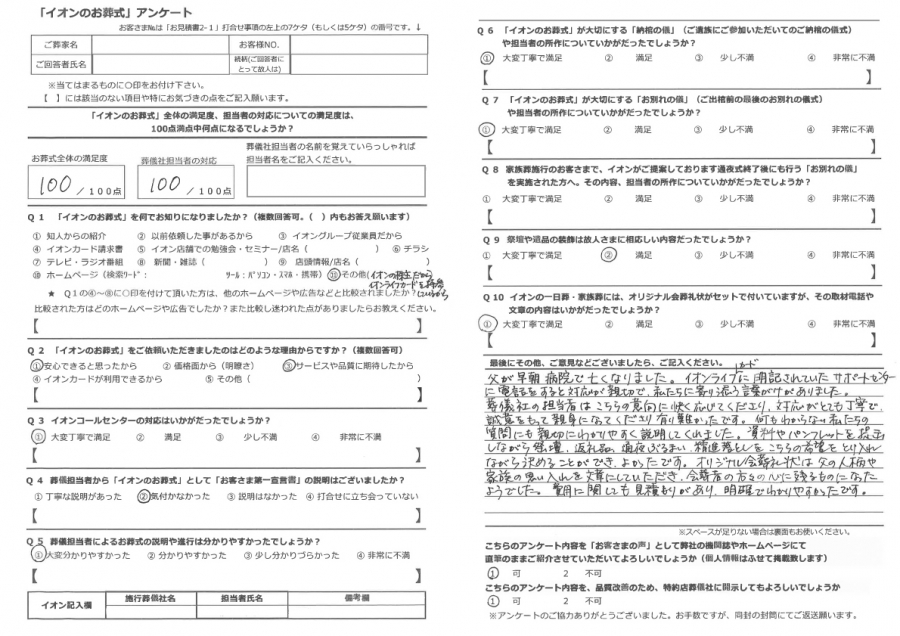 「イオンのお葬式」アンケート
お客さま№は「お見積書2-1」打合せ事項の左上の7ケタ（もしくは5ケタ）の番号です。↓
ご葬家名 お客様NO.
ご回答者氏名 続柄(ご回答者にとって故人は)
※当てはまるものに○印をお付け下さい。
【　】には該当のない項目や特にお気づきの点をご記入願います。
「イオンのお葬式」全体の満足度、担当者の対応についての満足度は、
100点満点中何点になるでしょうか？
お葬式全体の満足度
100 / 100点
葬儀社担当者の対応
100 / 100点
葬儀社担当者の名前を覚えていらっしゃれば
担当者名をご記入ください。
Q 1 「イオンのお葬式」を何でお知りになりましたか？（複数回答可。（　）内もお答え願います）
① 知人からの紹介 ② 以前依頼した事があるから ③ イオングループ従業員だから
④ イオンカード請求書 ⑤ イオン店舗での勉強会・セミナー/店名（　） ⑥ チラシ
⑦ テレビ・ラジオ番組 ⑧ 新聞・雑誌（　） ⑨ 店頭情報/店名（　）
⑩ ホームページ（検索ﾜｰﾄﾞ： ﾂｰﾙ：ﾊﾟｿｺﾝ・ｽﾏﾎ・携帯） ⑪その他(
★ Q1の④～⑩に○印を付けて頂いた方は、他のホームページや広告などと比較されましたか？
比較された方はどのホームページや広告でしたか？また比較し迷われた点がありましたらお教えください。
【　】
Q 2 「イオンのお葬式」をご依頼いただきましたのはどのような理由からですか？（複数回答可）
①安心できると思ったから ② 価格面から（明瞭さ） ③サービスや品質に期待したから
④ イオンカードが利用できるから ⑤ その他（　）
【　】
Q 3 イオンコールセンターの対応はいかがだったでしょうか？
① 大変丁寧で満足 ② 満足 ③ 少し不満 ④ 非常に不満
【　】
Q 4 葬儀担当者から「イオンのお葬式」として「お客さま第一宣言書」の説明はございましたか？
① 丁寧な説明があった ②気付かなかった ③ 説明はなかった ④ 打合せに立ち会っていない
【　】
Q 5 葬儀担当者によるお葬式の説明や進行は分かりやすかったでしょうか？
①大変分かりやすかった ② 分かりやすかった ③ 少し分かりづらかった ④ 非常に不満
【　】
イオン記入欄 施行葬儀社名 担当者氏名 備考欄
Q 6 「イオンのお葬式」が大切にする「納棺の儀」（ご遺族にご参加いただいてのご納棺の儀式）
や担当者の所作についていかがだったでしょうか？
① 大変丁寧で満足 ② 満足 ③ 少し不満 ④ 非常に不満
【　】
Q 7 「イオンのお葬式」が大切にする「お別れの儀」（ご出棺前の最後のお別れの儀式）
や担当者の所作についていかがだったでしょうか？
① 大変丁寧で満足 ② 満足 ③ 少し不満 ④ 非常に不満
【　】
Q 8 家族葬施行のお客さまで、イオンがご提案しております通夜式終了後にも行う「お別れの儀」
を実施された方へ。その内容、担当者の所作についていかがだったでしょうか？
① 大変丁寧で満足 ② 満足 ③ 少し不満 ④ 非常に不満
【　】
Q 9 祭壇や遺品の装飾は故人さまに相応しい内容だったでしょうか？
① 大変丁寧で満足 ② 満足 ③ 少し不満 ④ 非常に不満
【　】
Q 10 イオンの一日葬・家族葬には、オリジナル会葬礼状がセットで付いていますが、その取材電話や
文章の内容はいかがだったでしょうか？
① 大変丁寧で満足 ② 満足 ③ 少し不満 ④ 非常に不満
【　】
最後にその他、ご意見などございましたら、ご記入ください。
父が早朝病院で亡くなりました。イオンライフカードに明記されていたサポートセンター
に電話をすると対応が親切で、私たちに寄り添う言葉がけがありました。
葬儀社の担当者はこちらの意向に快く応じてくださり、対応がとても丁寧で、
誠意をもって親身になってくださり有り難かったです。何もわからない私たちの
質問にも親切にわかりやすく説明してくれました。資料やパンフレットを提示
しながら祭壇、返礼品、通夜ぶるまい、精進落としをこちらの希望をとり入れ
ながら決めることができ、よかったです。オリジナル会葬礼状は父の人柄や
家族の思い入れを文章にしていただき、会葬者の方々の心に残るものになった
ようでした。費用に関しても見積もりがあり、明確でわかりやすかったです。
※スペースが足りない場合は裏面もお使いください。
こちらのアンケート内容を「お客さまの声」として弊社の機関誌やホームページにて
直筆のままご紹介させていただいてよろしいでしょうか（個人情報はふせて掲載致します）
1 可 2 不可
こちらのアンケート内容を、品質改善のため、特約店葬儀社に開示してもよろしいでしょうか
1 可 2 不可
※アンケートのご協力ありがとうございました。お手数ですが、同封の封筒にてご返送願います。